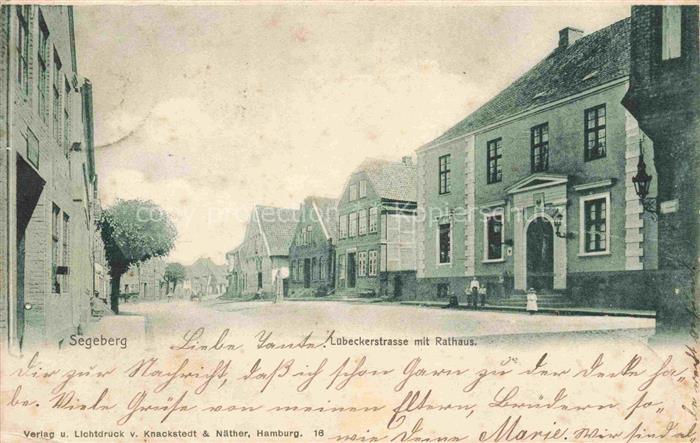 Segeberg
Liebe Tante!
Lübeckerstrasse mit Rathaus.
Dir zur Nachricht, daß ich schon Garn zu der Decke ha-
be. Viele Grüße von meinen Eltern, Brüdern so-
wie Deine Marie. Wir sind
Verlag u. Lichtdruck v. Knackstedt & Näther, Hamburg. 16